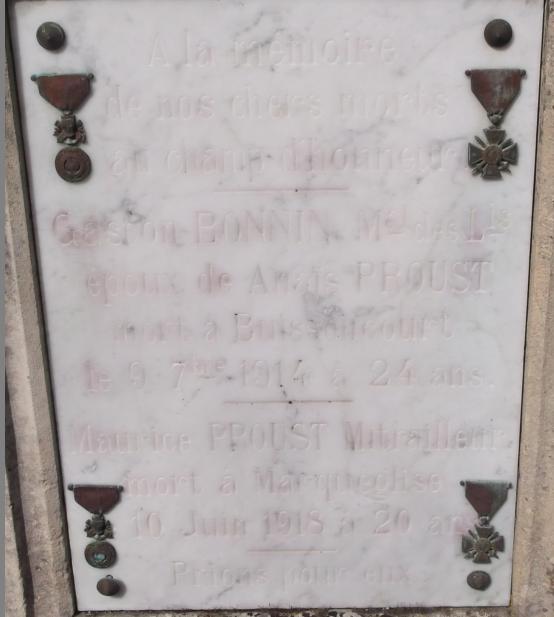 A la mémoire
de nos chers morts
au champ d'honneur
Gaston BONNIN Mal des Lis
époux de Anaïs PROUST
mort à Buissoncourt
le 9 7bre 1914 à 24 ans.
Maurice PROUST Mitrailleur
mort à Marquéglise
10 Juin 1918 à 20 ans
Prions pour eux